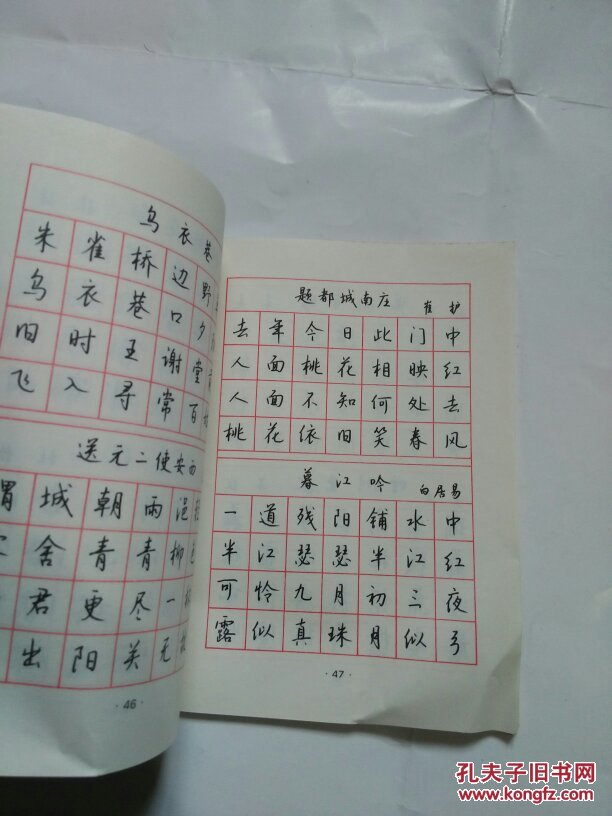 乌衣巷
朱雀桥边野
乌衣巷口夕
旧时王谢堂
飞入寻常百
送元二使安西
渭城朝雨浥
舍青青柳
君更尽一
出阳关无
· 46 ·
题都城南庄 崔护
去年今日此门中
人面桃花相映红
人面不知何处去
桃花依旧笑春风
暮江吟 白居易
一道残阳铺水中
半江瑟瑟半江红
可怜九月初三夜
露似真珠月似弓
· 47 ·
孔夫子旧书网
www.kongfz.com